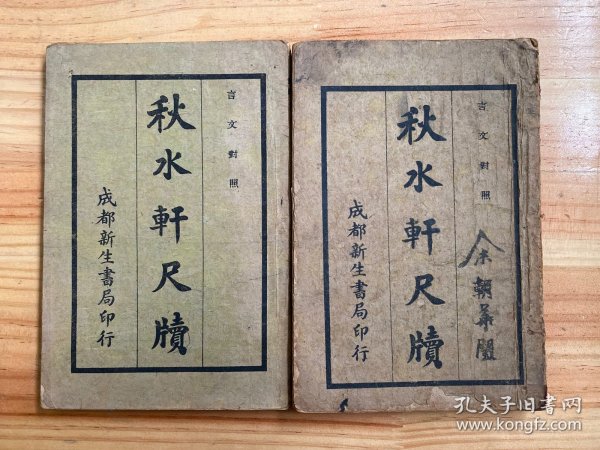 言文對照
秋水軒尺牘
成都新生書局印行
言文對照
秋水軒尺牘
成都新生書局印行
余朝華閱
孔夫子旧书网
www.kongfz.com